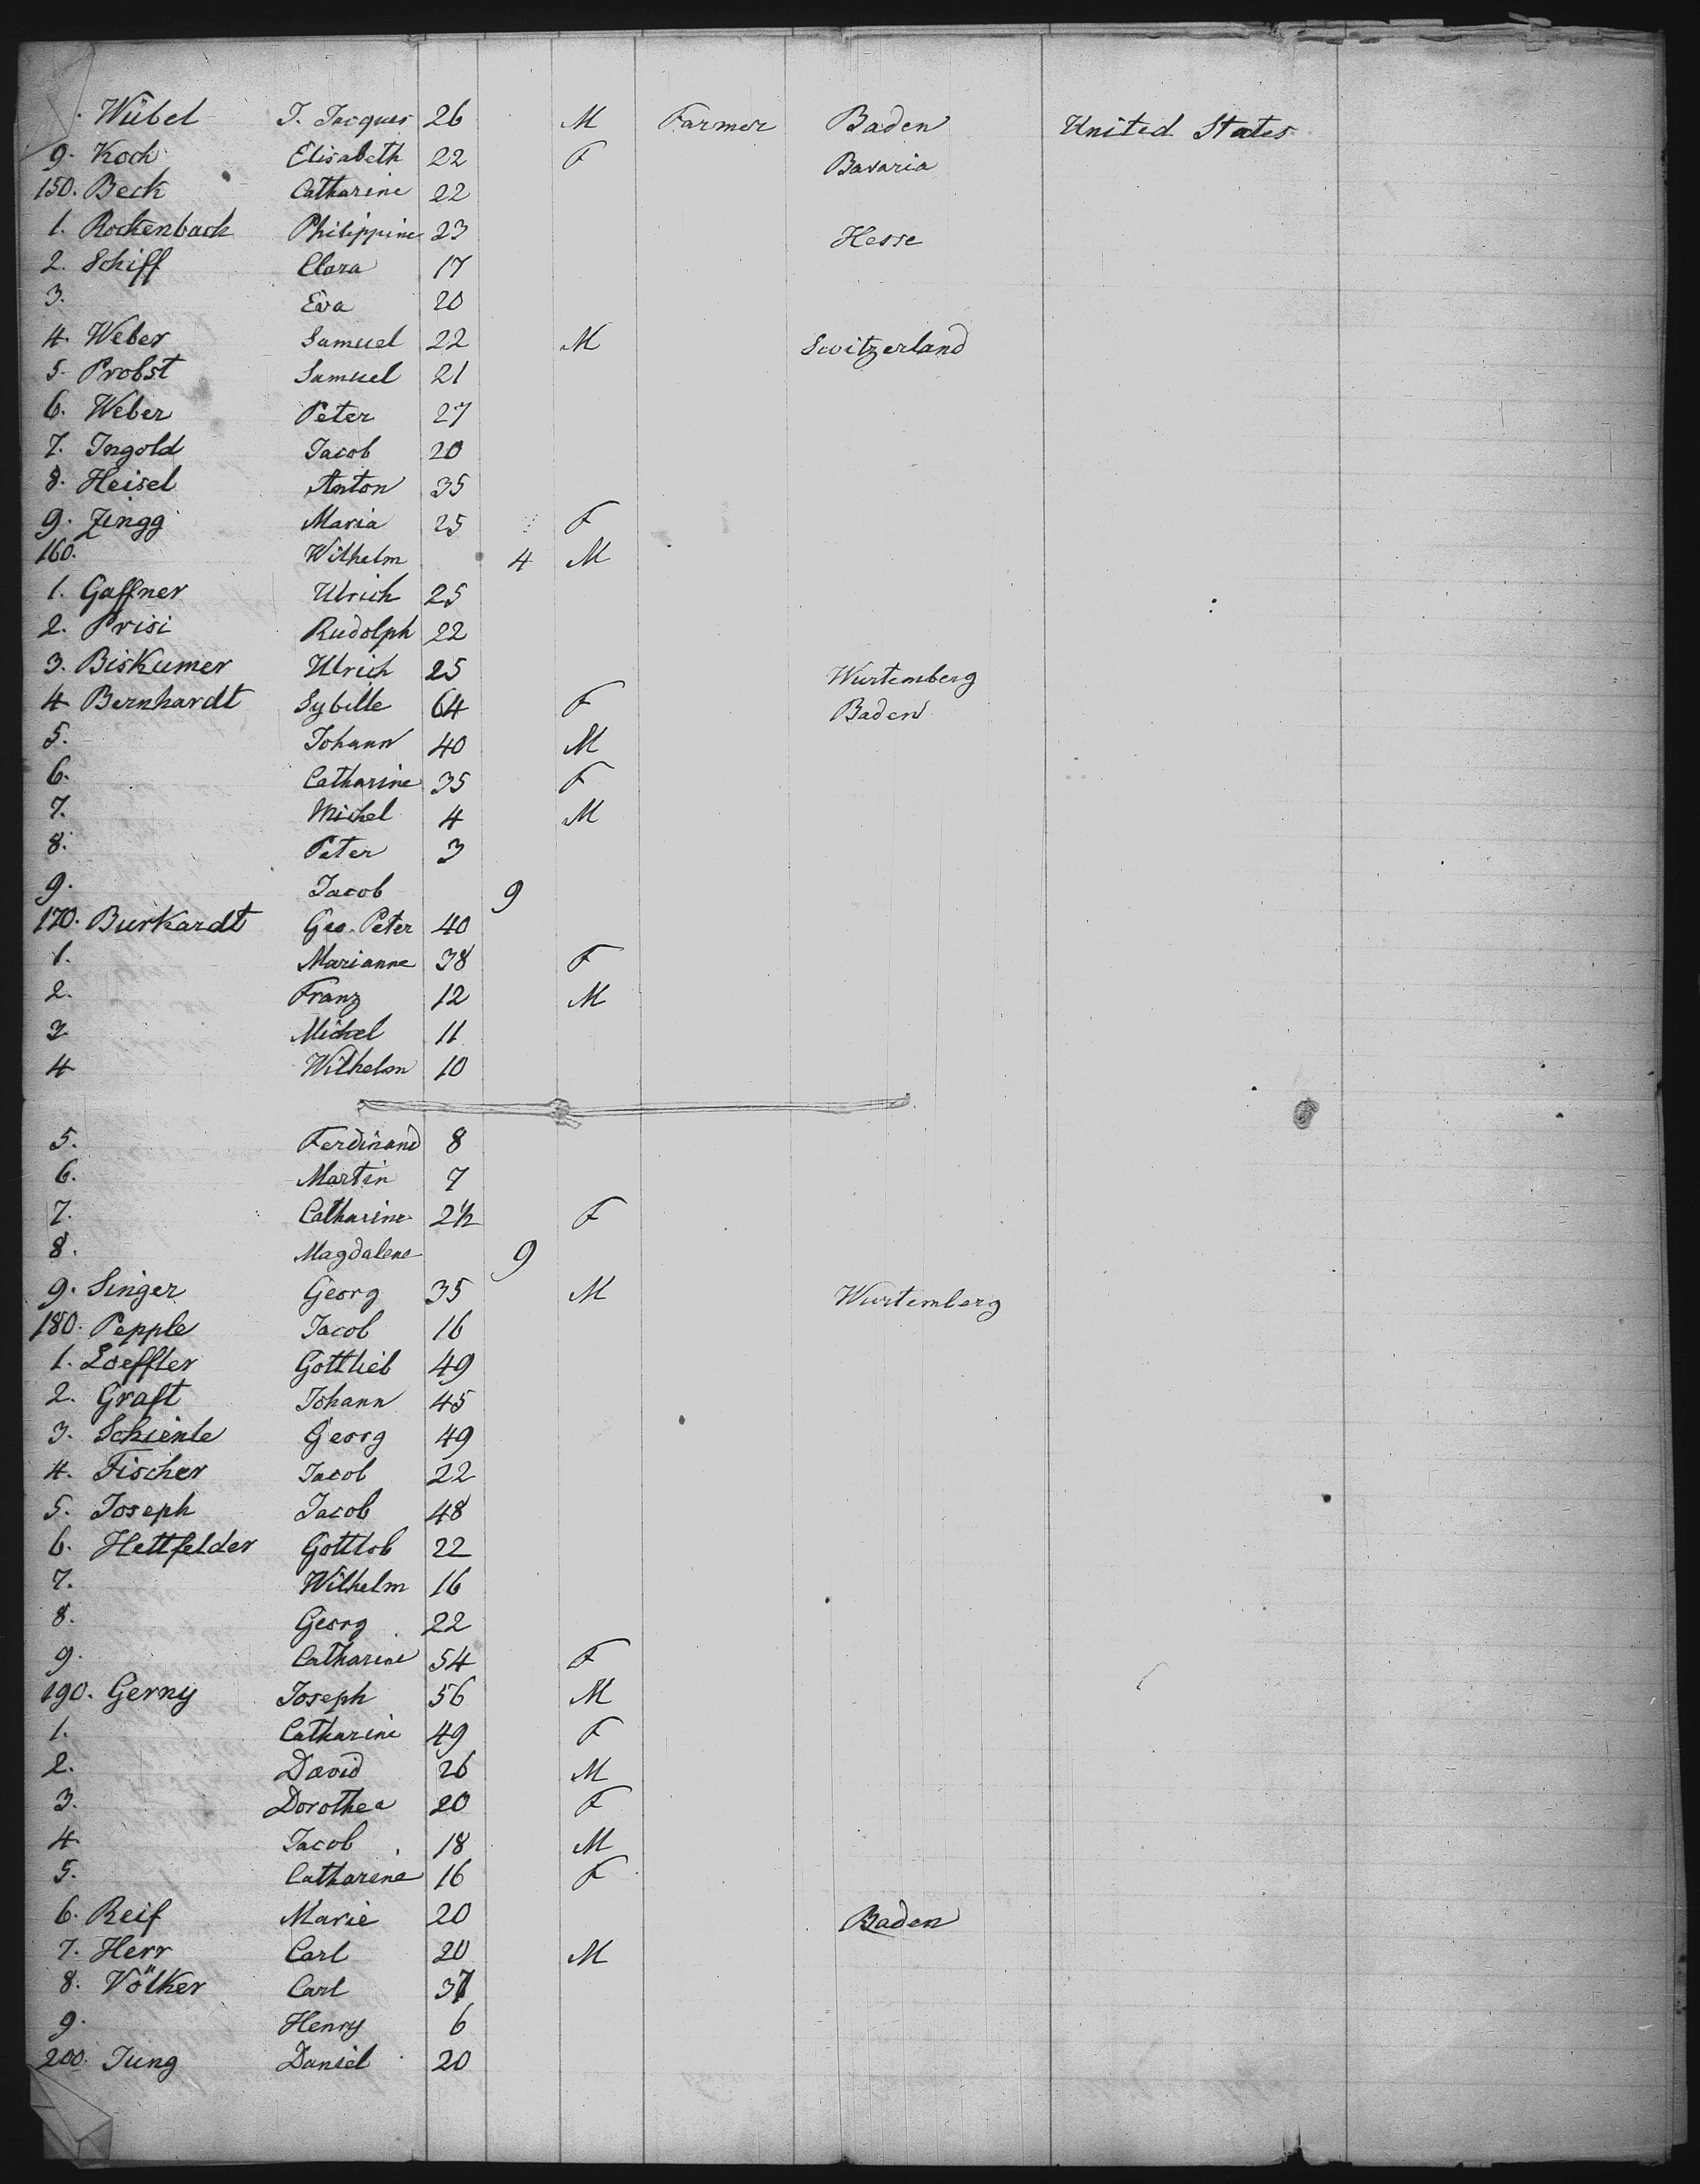 Wübel J. Jacques 26 M Farmer Baden United States
9. Koch Elisabeth 22 F Bavaria
150. Beck Catharine 22
1. Rockenbach Philippine 23 Hesse
2. Schiff Clara 17
3. Eva 20
4. Weber Samuel 22 M Switzerland
5. Probst Samuel 21
6. Weber Peter 27
7. Ingold Jacob 20
8. Heisel Anton 35
9. Zingg Maria 25 F
160. Wilhelm 4 M
1. Gaffner Ulrich 25
2. Prisi Rudolph 22
3. Biskumer Ulrich 25 Wurtemberg
4 Bernhardt Sybille 64 F Baden
5. Johann 40 M
6. Catharine 35 F
7. Michel 4 M
8. Peter 3
9. Jacob 9
170. Burkardt Geo. Peter 40
1. Marianne 38 F
2. Franz 12 M
3 Michel 11
4 Wilhelm 10
5. Ferdinand 8
6. Martin 7
7. Catharine 2½ F
8. Magdalene 9
9. Singer Georg 35 M Wurtemberg
180. Pepple Jacob 16
1. Loeffler Gottlieb 49
2. Graft Johann 45
3. Schienle Georg 49
4. Fischer Jacob 22
5. Joseph Jacob 48
6. Hettfelder Gottlob 22
7. Wilhelm 16
8. Georg 22
9. Catharine 54 F
190. Gerny Joseph 56 M
1. Catharine 49 F
2. David 26 M
3. Dorothea 20 F
4. Jacob 18 M
5. Catharine 16 F
6. Reif Marie 20 Baden
7. Herr Carl 20 M
8. Völker Carl 37
9. Henry 6
200. Jung Daniel 20